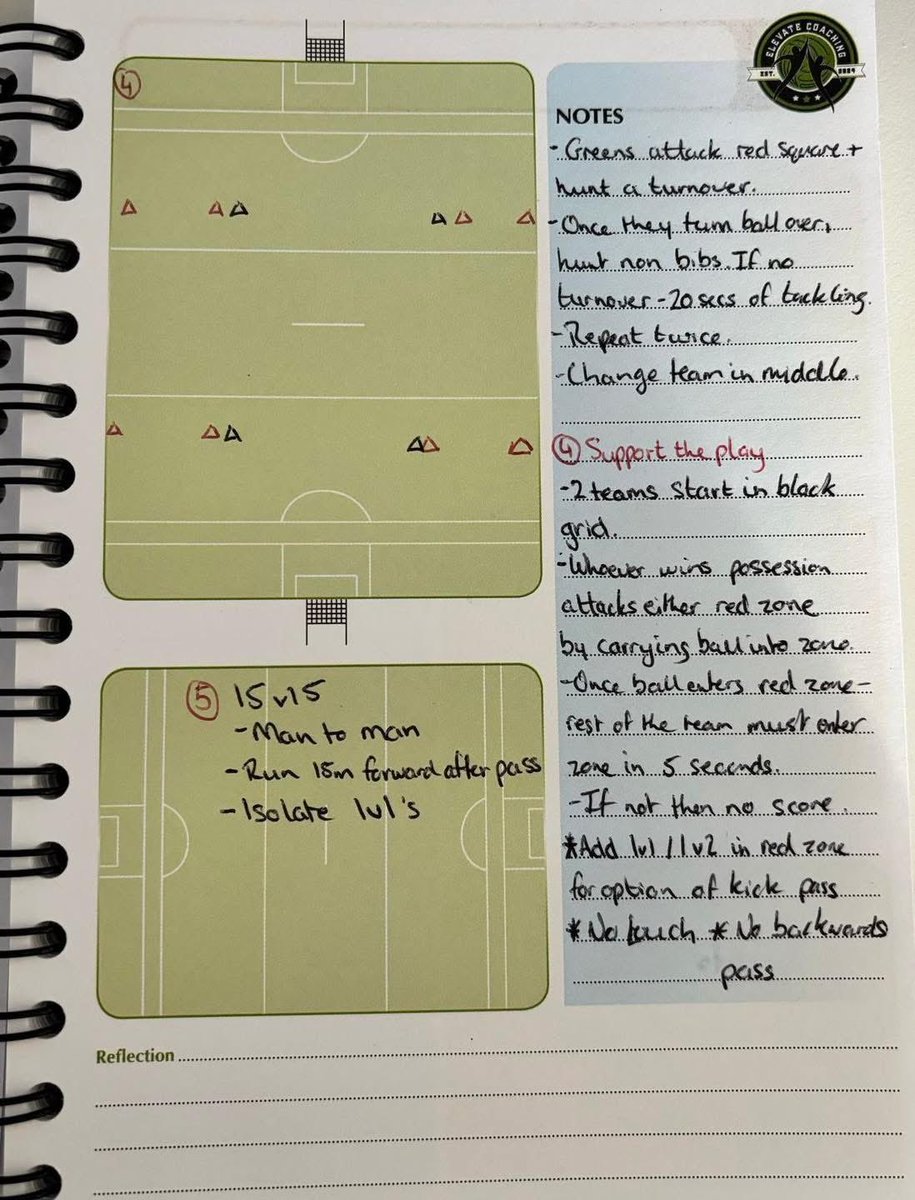 ELEVATE COACHING
EST. 2024
4
NOTES
- Greens attack red square +
hunt a turnover.
- Once they turn ball over,
hunt non bibs. If no
turnover - 20 secs of tackling.
- Repeat twice.
- Change team in middle.
4 Support the play
- 2 teams start in black
grid.
- Whoever wins possession
attacks either red zone
by carrying ball into zone.
- Once ball enters red zone -
rest of the team must enter
zone in 5 seconds.
- If not then no score.
* Add 1v1 / 1v2 in red zone
for option of kick pass
* No touch * No backwards
pass
5 15 v 15
- Man to man
- Run 15m forward after pass
- Isolate 1v1's
Reflection